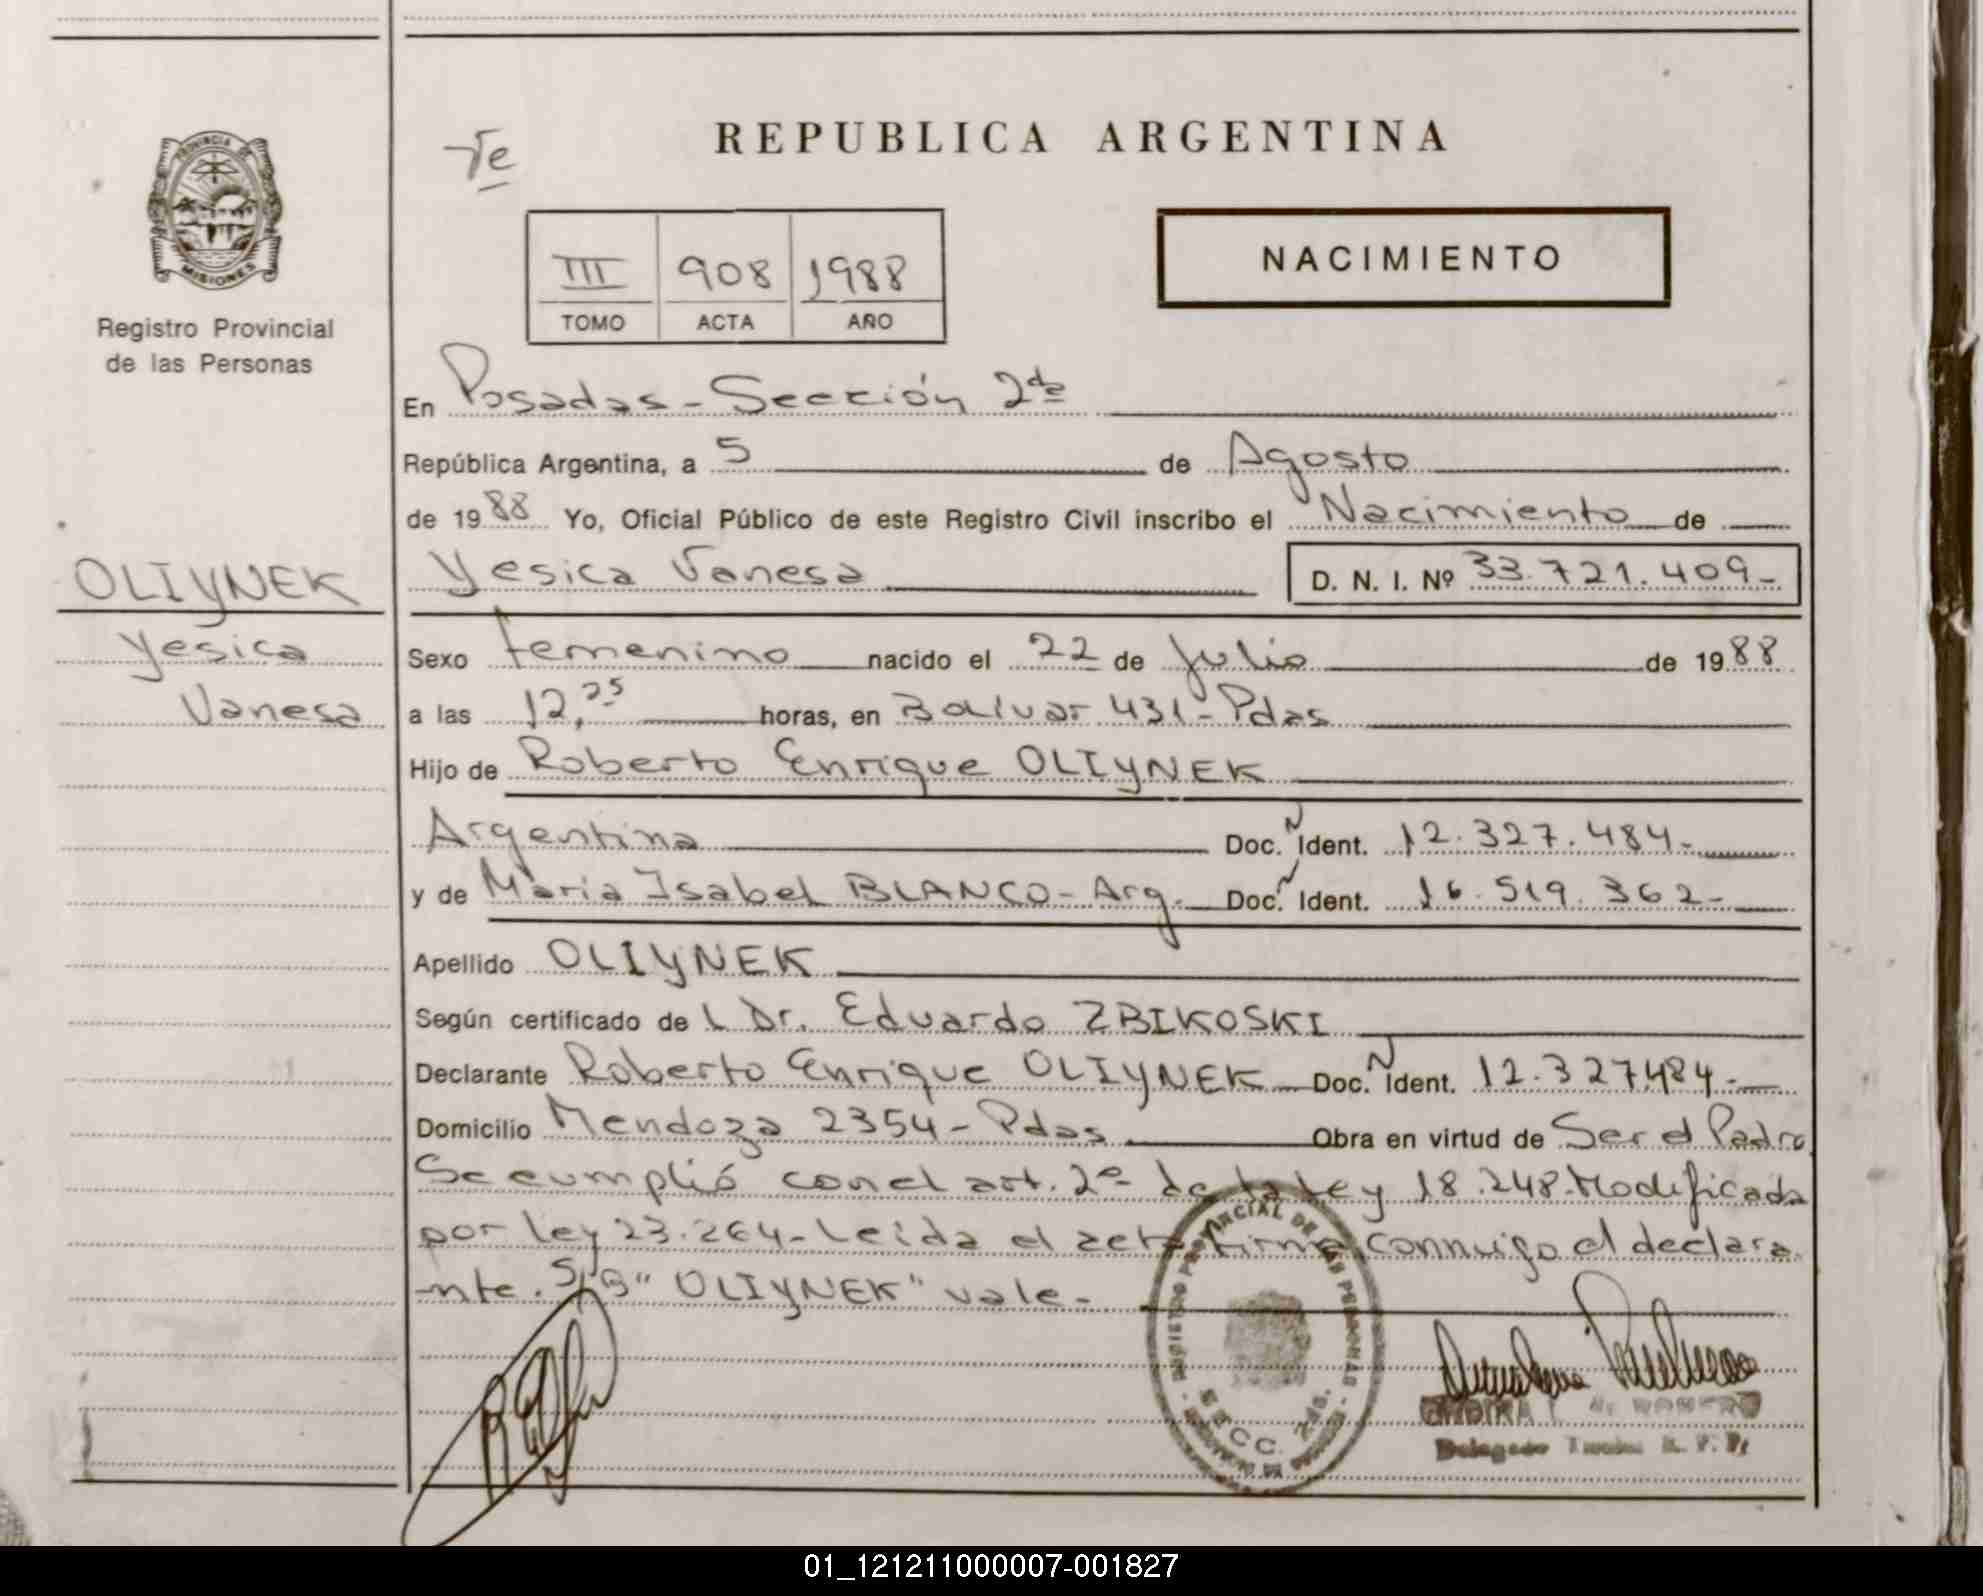 REPUBLICA ARGENTINA
PROVINCIA DE
MISIONES
Registro Provincial
de las Personas
III 908 1988
TOMO ACTA AÑO
NACIMIENTO
En Posadas - Sección 2da
República Argentina, a 5 de Agosto
de 1988 Yo, Oficial Público de este Registro Civil inscribo el Nacimiento de
OLIYNEK
Yesica
Vanesa
Yesica Vanesa D. N. I. Nº 33.721.409-
Sexo femenino nacido el 22 de Julio de 1988
a las 12,25 horas, en Bolívar 431 - Pdas
Hijo de Roberto Enrique OLIYNEK
Argentina Doc. N Ident. 12.327.484-
y de María Isabel BLANCO - Arg. Doc. N Ident. 16.519.362-
Apellido OLIYNEK
Según certificado de L Dr. Eduardo ZBIKOSKI
Declarante Roberto Enrique OLIYNEK Doc. N Ident. 12.327.484-
Domicilio Mendoza 2354 - Pdas Obra en virtud de Ser el Padre
Se cumplió con el art. 2º de la Ley 18.248. Modificada
por ley 23.264 - Leída el acta firma conmigo el declara
nte. S/B "OLIYNEK" vale -
REGISTRO PROVINCIAL DE LAS PERSONAS
SECC. 2da.
Delegado Titular R. P. P.
01_121211000007-001827